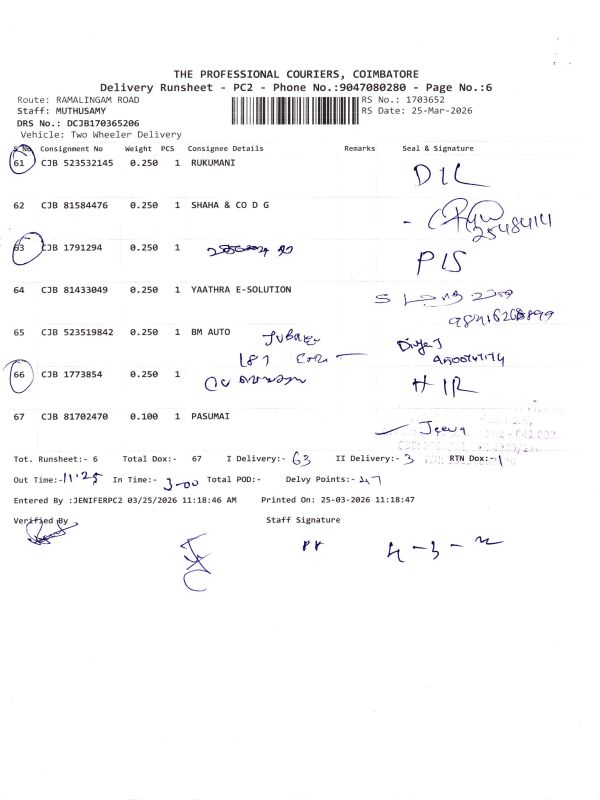 THE PROFESSIONAL COURIERS, COIMBATORE
Delivery Runsheet - PC2 - Phone No.:9047080280 - Page No.:6
Route: RAMALINGAM ROAD
RS No.: 1703652
Staff: MUTHUSAMY
RS Date: 25-Mar-2026
DRS No.: DCJB170365206
Vehicle: Two Wheeler Delivery
S No Consignment No Weight PCS Consignee Details Remarks Seal & Signature
61 CJB 523532145 0.250 1 RUKUMANI D1L
62 CJB 81584476 0.250 1 SHAHA & CO D G
63 CJB 1791294 0.250 1 P/S
64 CJB 81433049 0.250 1 YAATHRA E-SOLUTION
65 CJB 523519842 0.250 1 BM AUTO
187
66 CJB 1773854 0.250 1
67 CJB 81702470 0.100 1 PASUMAI Jeeva
Tot. Runsheet:- 6 Total Dox:- 67 I Delivery:- 63 II Delivery:- 3 RTN Dox:- 1
Out Time:- 11:25 In Time:- 3-00 Total POD:- Delvy Points:- 47
Entered By :JENIFERPC2 03/25/2026 11:18:46 AM Printed On: 25-03-2026 11:18:47
Verified By Staff Signature